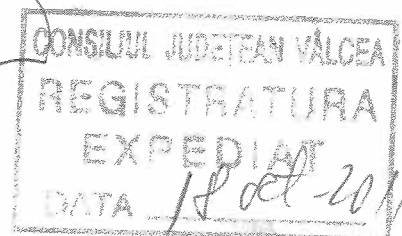 CONSILIUL JUDEȚEAN VÂLCEA
REGISTRATURA
EXPEDIAT
DATA 18 oct -201